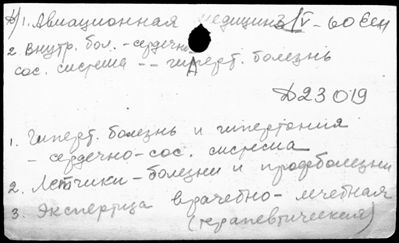 1. Авиационная медицина
2 Внутр. бол. - сердечно
сос. система -- гиперт. болезнь
Д23019
1. Гиперт. болезнь и гипертония
- сердечно-сос. система
2. Летчики - болезни и профболезни
3. Экспертиза врачебно-лечебная
(терапевтическая)